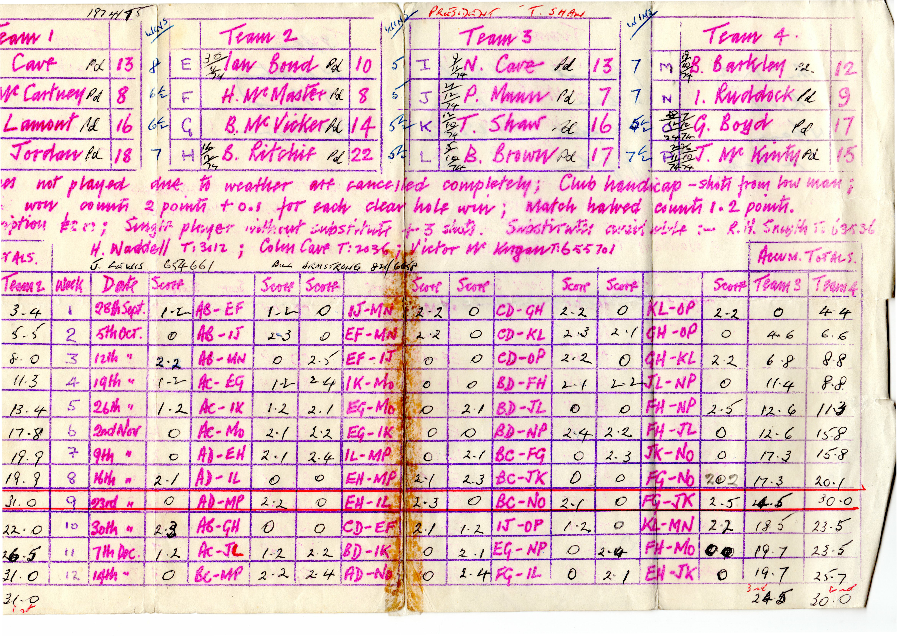 1974/75 WINS WINS PRESIDENT T. SHAW WINS
Team 1 Team 2 Team 3 Team 4.
Cave Pd 13 8 E Ian Bond Pd 10 5 I N. Cave Pd 13 7 M B. Barkley Pd. 12
McCartney Pd 8 6½ F H. McMaster Pd 8 5 J P. Mann Pd 7 7 N I. Ruddock Pd 9
Lamont Pd 16 6½ G B. McVicker Pd 14 5½ K T. Shaw Pd 16 G. Boyd Pd 17
Jordan Pd 18 7 H B. Ritchie Pd 22 5½ L B. Brown Pd 17 7½ J. McKinty Pd 15
not played due to weather are cancelled completely; Club handicap - shots from low man;
won counts 2 points + 0.1 for each clear hole win; Match halved counts 1.2 points.
Single player without substitute + 3 shots. Substitutes available :- R. H. Smyth T.
H. Waddell T. 3412; Colm Cave T. 2036; Victor Mc T. 655701
J. Lewis 654661 Bill Armstrong
TALS. ACUM. TOTALS.
Team 2 Week Date Score Score Score Score Score Score Team 3 Team 4
3.4 1 28th Sept. 1.2 AB-EF 1.2 0 IJ-MN 2.2 0 CD-GH 2.2 0 KL-OP 2.2 0 4.4
5.5 2 5th Oct. 0 AB-IJ 2.3 0 EF-MN 2.2 0 CD-KL 2.3 2.1 GH-OP 0 4.6 6.6
8.0 3 12th " 2.2 AB-MN 0 2.5 EF-IJ 0 0 CD-OP 2.2 0 GH-KL 2.2 6.8 8.8
11.3 4 19th " 1.2 AC-EG 1.2 2.4 IK-MO 0 0 BD-FH 2.1 2.2 JL-NP 0 11.4 8.8
13.4 5 26th " 1.2 AC-IK 1.2 2.1 EG-MO 0 2.1 BD-JL 0 0 FH-NP 2.5 12.6 11.3
17.8 6 2nd Nov 0 AC-MO 2.1 2.2 EG-IK 0 0 BD-NP 2.4 2.2 FH-JL 0 12.6 15.8
19.9 7 9th " 0 AD-EH 2.1 2.4 IL-MP 0 2.1 BC-FG 0 2.3 JK-NO 0 17.3 15.8
19.9 8 16th " 2.1 AD-IL 0 0 EH-MP 2.1 2.3 BC-JK 0 0 FG-NO 2.2 17.3 20.1
31.0 9 23rd " 0 AD-MP 2.2 0 EH-IL 2.3 0 BC-NO 2.1 0 FG-JK 2.5 24.5 30.0
22.0 10 30th " 2.3 AB-GH 0 0 CD-EF 2.1 1.2 IJ-OP 1.2 0 KL-MN 2.2 18.5 23.5
26.5 11 7th Dec. 1.2 AC-JL 1.2 2.2 BD-IK 0 2.1 EG-NP 0 2.4 FH-MO 0 19.7 23.5
31.0 12 14th " 0 BC-MP 2.2 2.4 AD-NO 0 2.4 FG-IL 0 2.1 EH-JK 0 19.7 25.7
31.0 1st 3rd 24.5 2nd 30.0